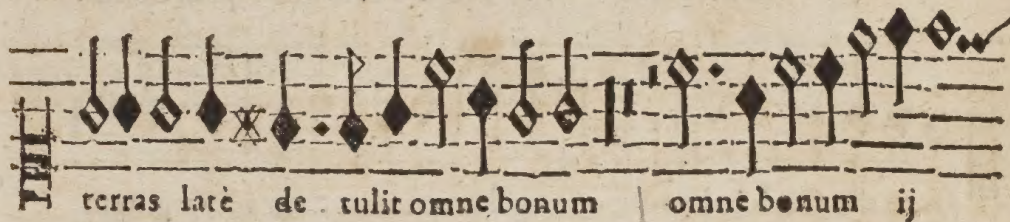 terras latè de tulit omne bonum omne bonum ij